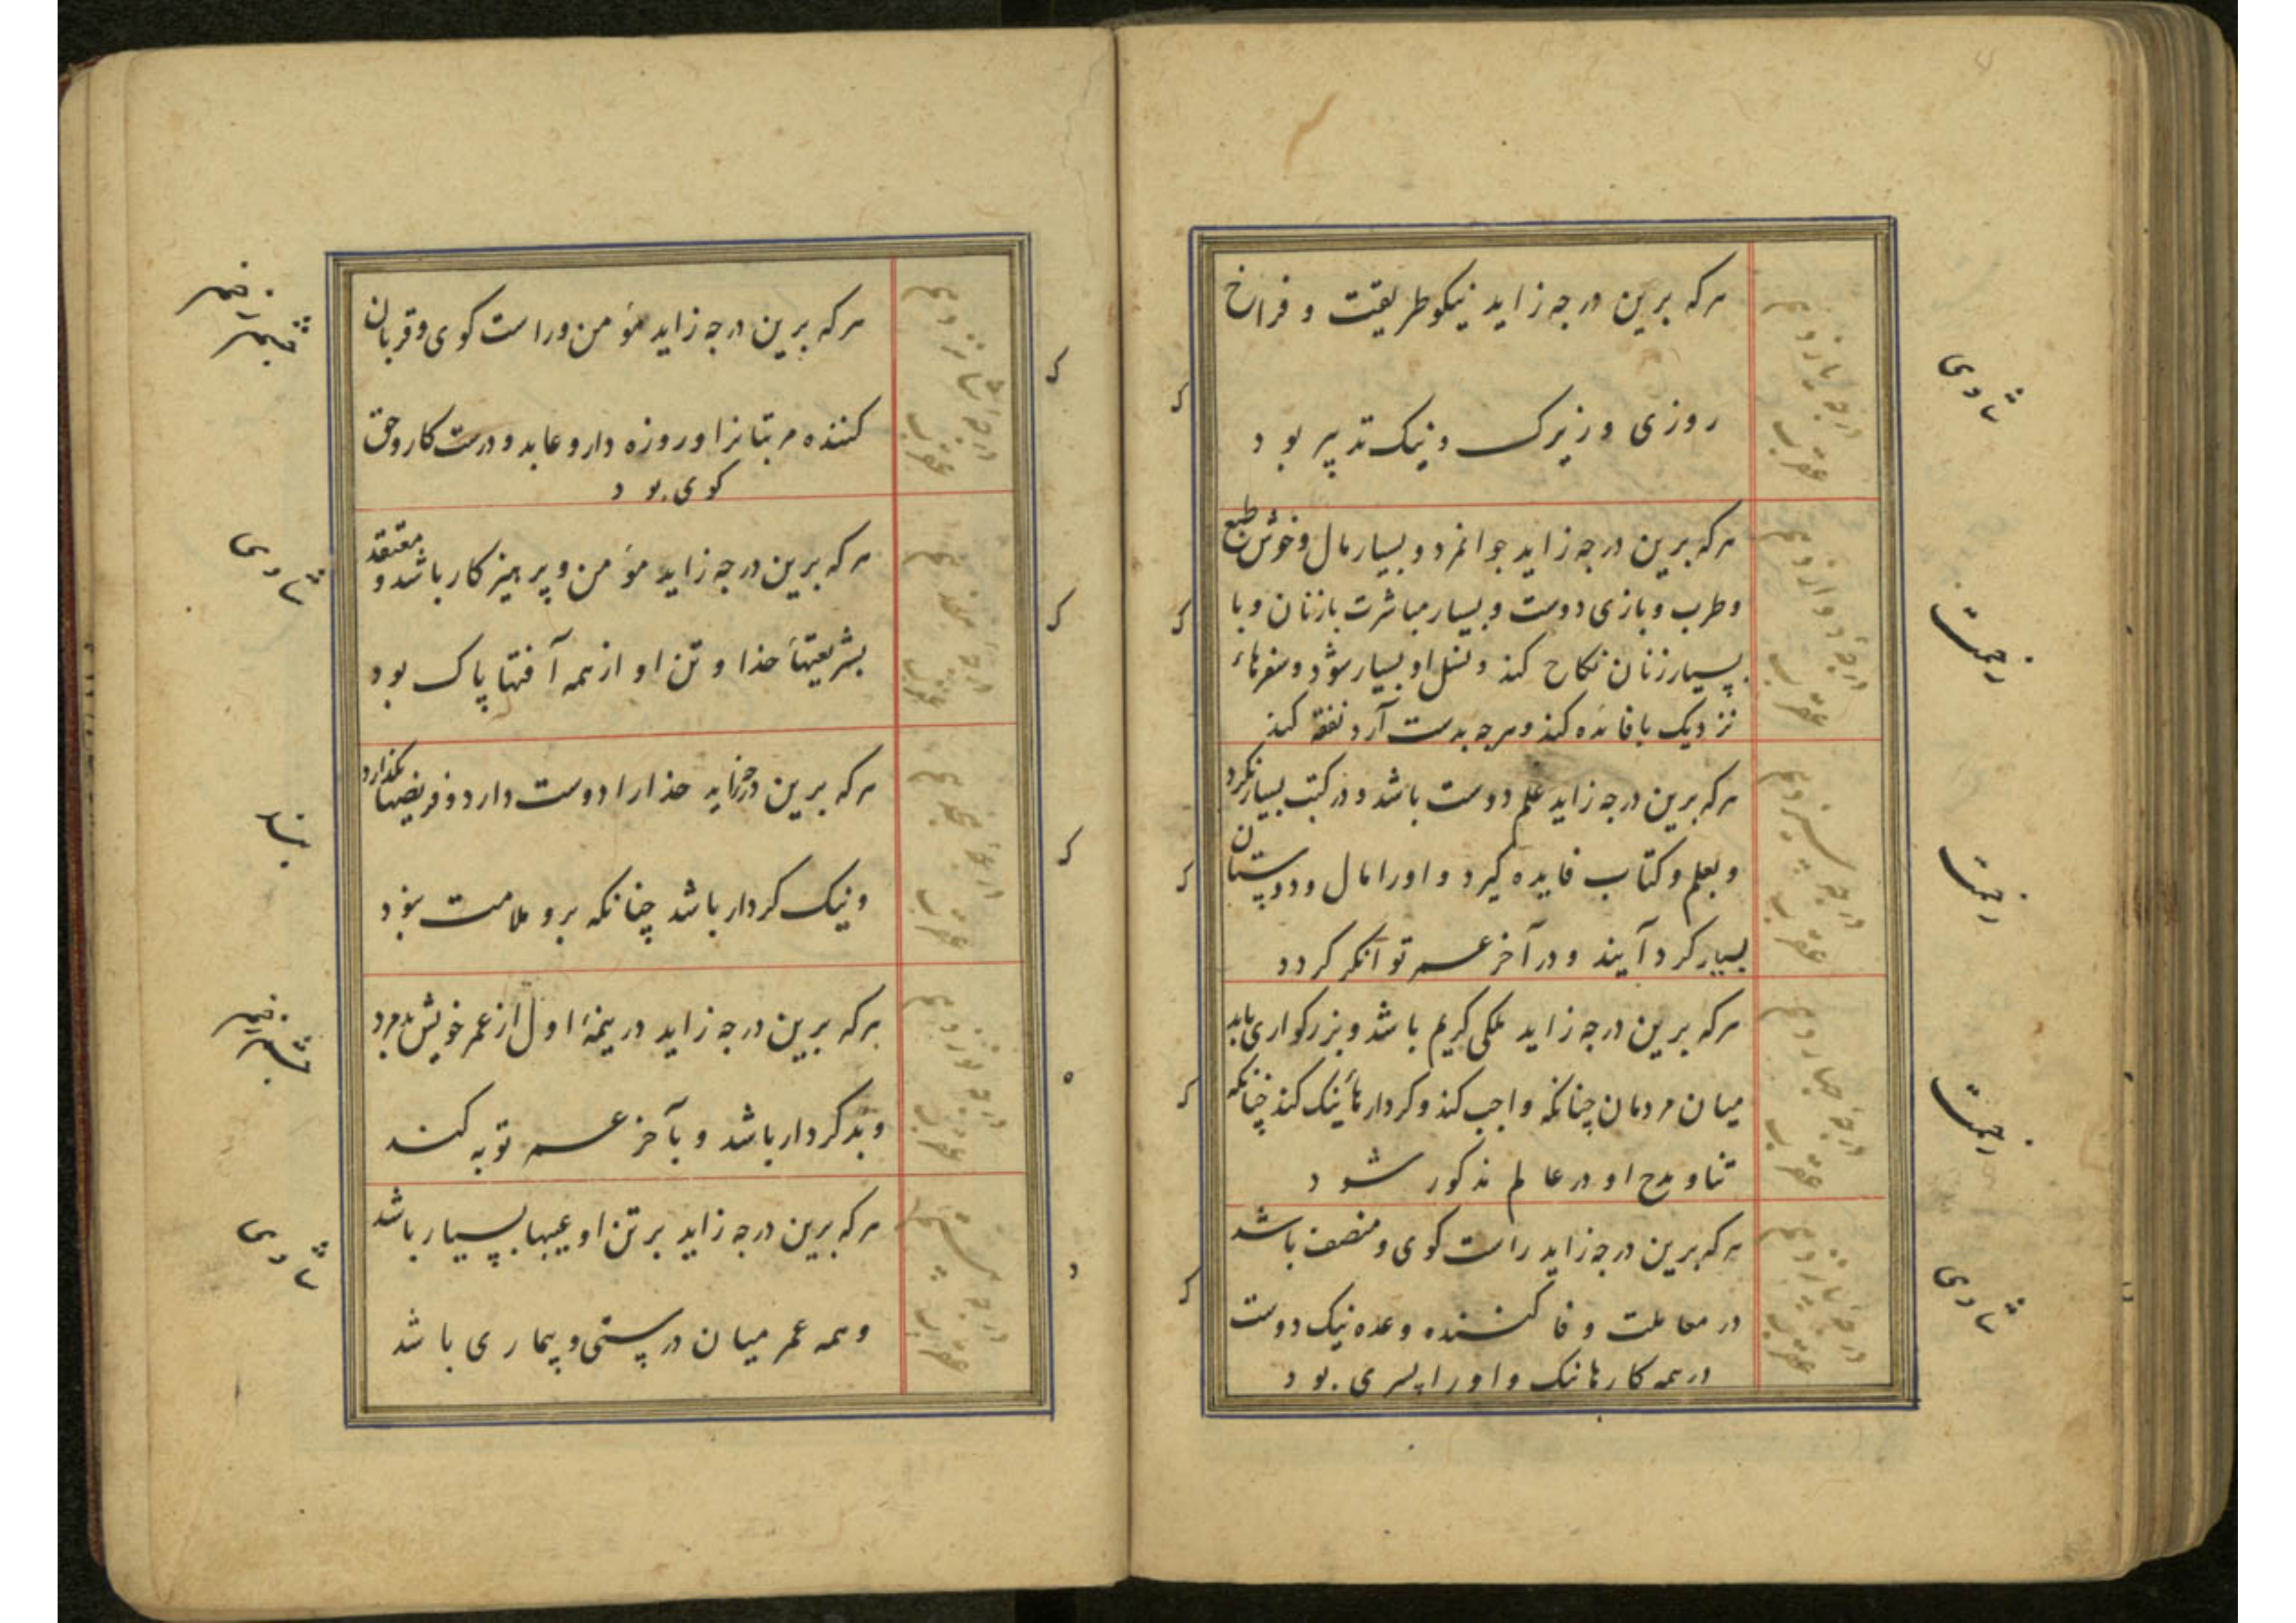 هرکه برین درجه زاید نیکو طریقت و فراخ
روزی و زیرک و نیک تدبیر بود
هرکه برین درجه زاید جوانمرد و بسیار مال و خوش طبع
و طرب و بازی دوست و بسیار مباشرت با زنان و با
بسیار زنان نکاح کند و نسل او بسیار شود و سفرهاء
نزدیک با فائده کند و هرچه بدست آرد نفقه کند
هرکه برین درجه زاید علم دوست باشد و در کتب بسیار نکرد
و بعلم و کتاب فایده کیرد و او را مال و دوستان
بسیار کرد آیند و در آخر عمر توانکر کردد
هرکه برین درجه زاید ملکی کریم باشد و بزرکواری یابد
میان مردمان چنانکه واجب کند و کردارهاء نیک کند چنانکه
ثنا و مدح او در عالم مذکور شود
هرکه برین درجه زاید راست کوی و منصف باشد
در معاملت و وفا کننده وعده نیک دوست
در همه کارها نیک و او را پسری بود
درجهٔ یازدهم عقرب
درجهٔ دوازدهم عقرب
درجهٔ سیزدهم عقرب
درجهٔ چهاردهم عقرب
درجهٔ پانزدهم عقرب
هرکه برین درجه زاید مؤمن و راست کوی و قربان
کننده مر بتانرا و روزه دار و عابد و درست کار و حق
کوی بود
هرکه برین درجه زاید مؤمن و پرهیزکار باشد و معتقد
بشریعتهاء خذا و تن او از همه آفتها پاک بود
هرکه برین درجه زاید خذا را دوست دارد و فریضها بکذارد
و نیک کردار باشد چنانکه برو ملامت نبود
هرکه برین درجه زاید در نیمهٔ اول از عمر خویش بدمرد
و بدکردار باشد و بآخر عمر توبه کند
هرکه برین درجه زاید بر تن او عیبها بسیار باشد
و همه عمر میان درستی و بیماری باشد
درجهٔ شانزدهم عقرب
درجهٔ هفدهم عقرب
درجهٔ هجدهم عقرب
درجهٔ نوزدهم عقرب
درجهٔ بیستم عقرب